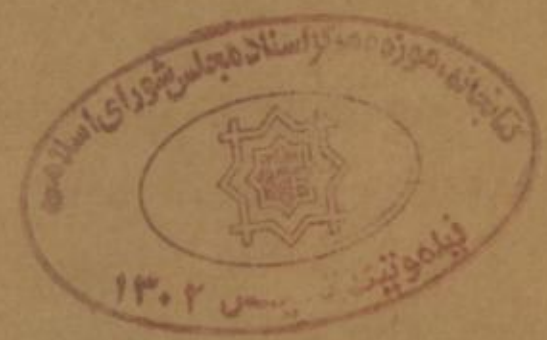 کتابخانه، موزه و مرکز اسناد مجلس شورای اسلامی
۱۳۰۲